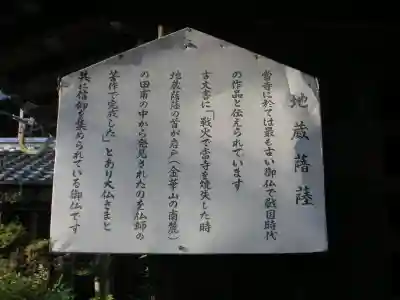 地蔵菩薩
當寺に於ては最も古い御仏で戦国時代
の作品と伝えられています
古文書に「戦火で當寺を焼失した時
地蔵菩薩の首が岩戸(金華山の南麓)
の田甫の中から発見されたのを仏師の
苦作で完成した」とあり大仏さまと
共に信仰を集められている御仏です